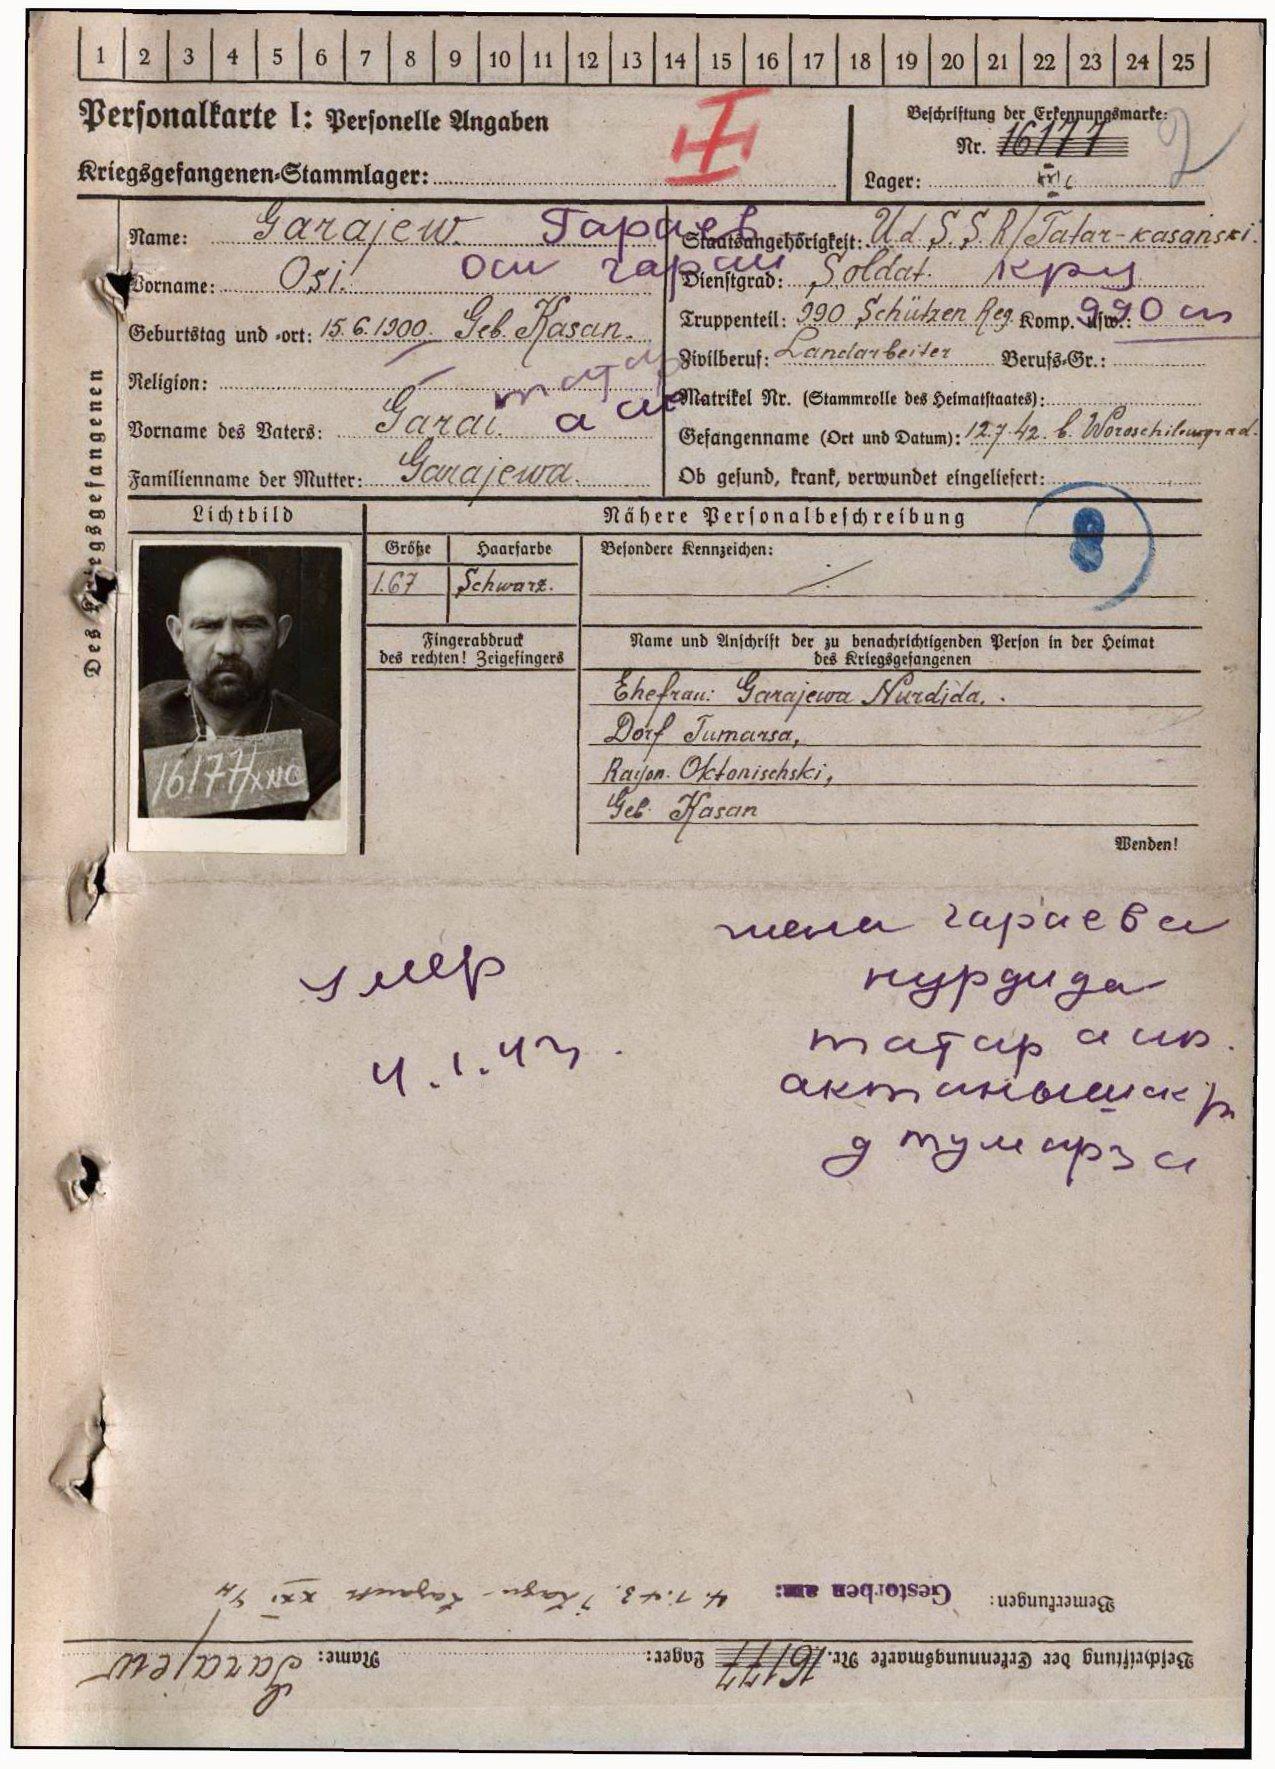 1 2 3 4 5 6 7 8 9 10 11 12 13 14 15 16 17 18 19 20 21 22 23 24 25
Personalkarte I: Personelle Angaben
Kriegsgefangenen-Stammlager:
Beschriftung der Erkennungsmarke:
Nr. 16177
Lager:
2
Des Kriegsgefangenen
Name: Garajew. Гараев
Vorname: Osi. Оси гараи
Geburtstag und -ort: 15.6.1900. Geb. Kasan.
Religion:
татар
Vorname des Vaters: Garai.
Familienname der Mutter: Garajewa.
Staatsangehörigkeit: U d. S. S. R/Tatar-kasanski.
Dienstgrad: Soldat. кр
Truppenteil: 990 Schützen Reg. Komp. usw.: 990 сп
Zivilberuf: Landarbeiter Berufs-Gr.:
Matrikel Nr. (Stammrolle des Heimatstaates):
Gefangenname (Ort und Datum): 12.7.42. b. Woroschilowgrad.
Ob gesund, krank, verwundet eingeliefert:
Lichtbild
Nähere Personalbeschreibung
8
Größe Haarfarbe
1.67 Schwarz.
Besondere Kennzeichen:
Fingerabdruck
des rechten! Zeigefingers
Name und Anschrift der zu benachrichtigenden Person in der Heimat
des Kriegsgefangenen
Ehefrau: Garajewa Nurdida.
Dorf Tumarsa,
Rayon. Oktonischski,
Geb. Kasan
Wenden!
16177/XXIC
умер
4.1.43.
жена гараева
нурдида
татар
актаныш
д тумарза
Bemerkungen: Gestorben am: 4.1.43.
Beschriftung der Erkennungsmarke Nr. 16177 Lager: Name: Garajew